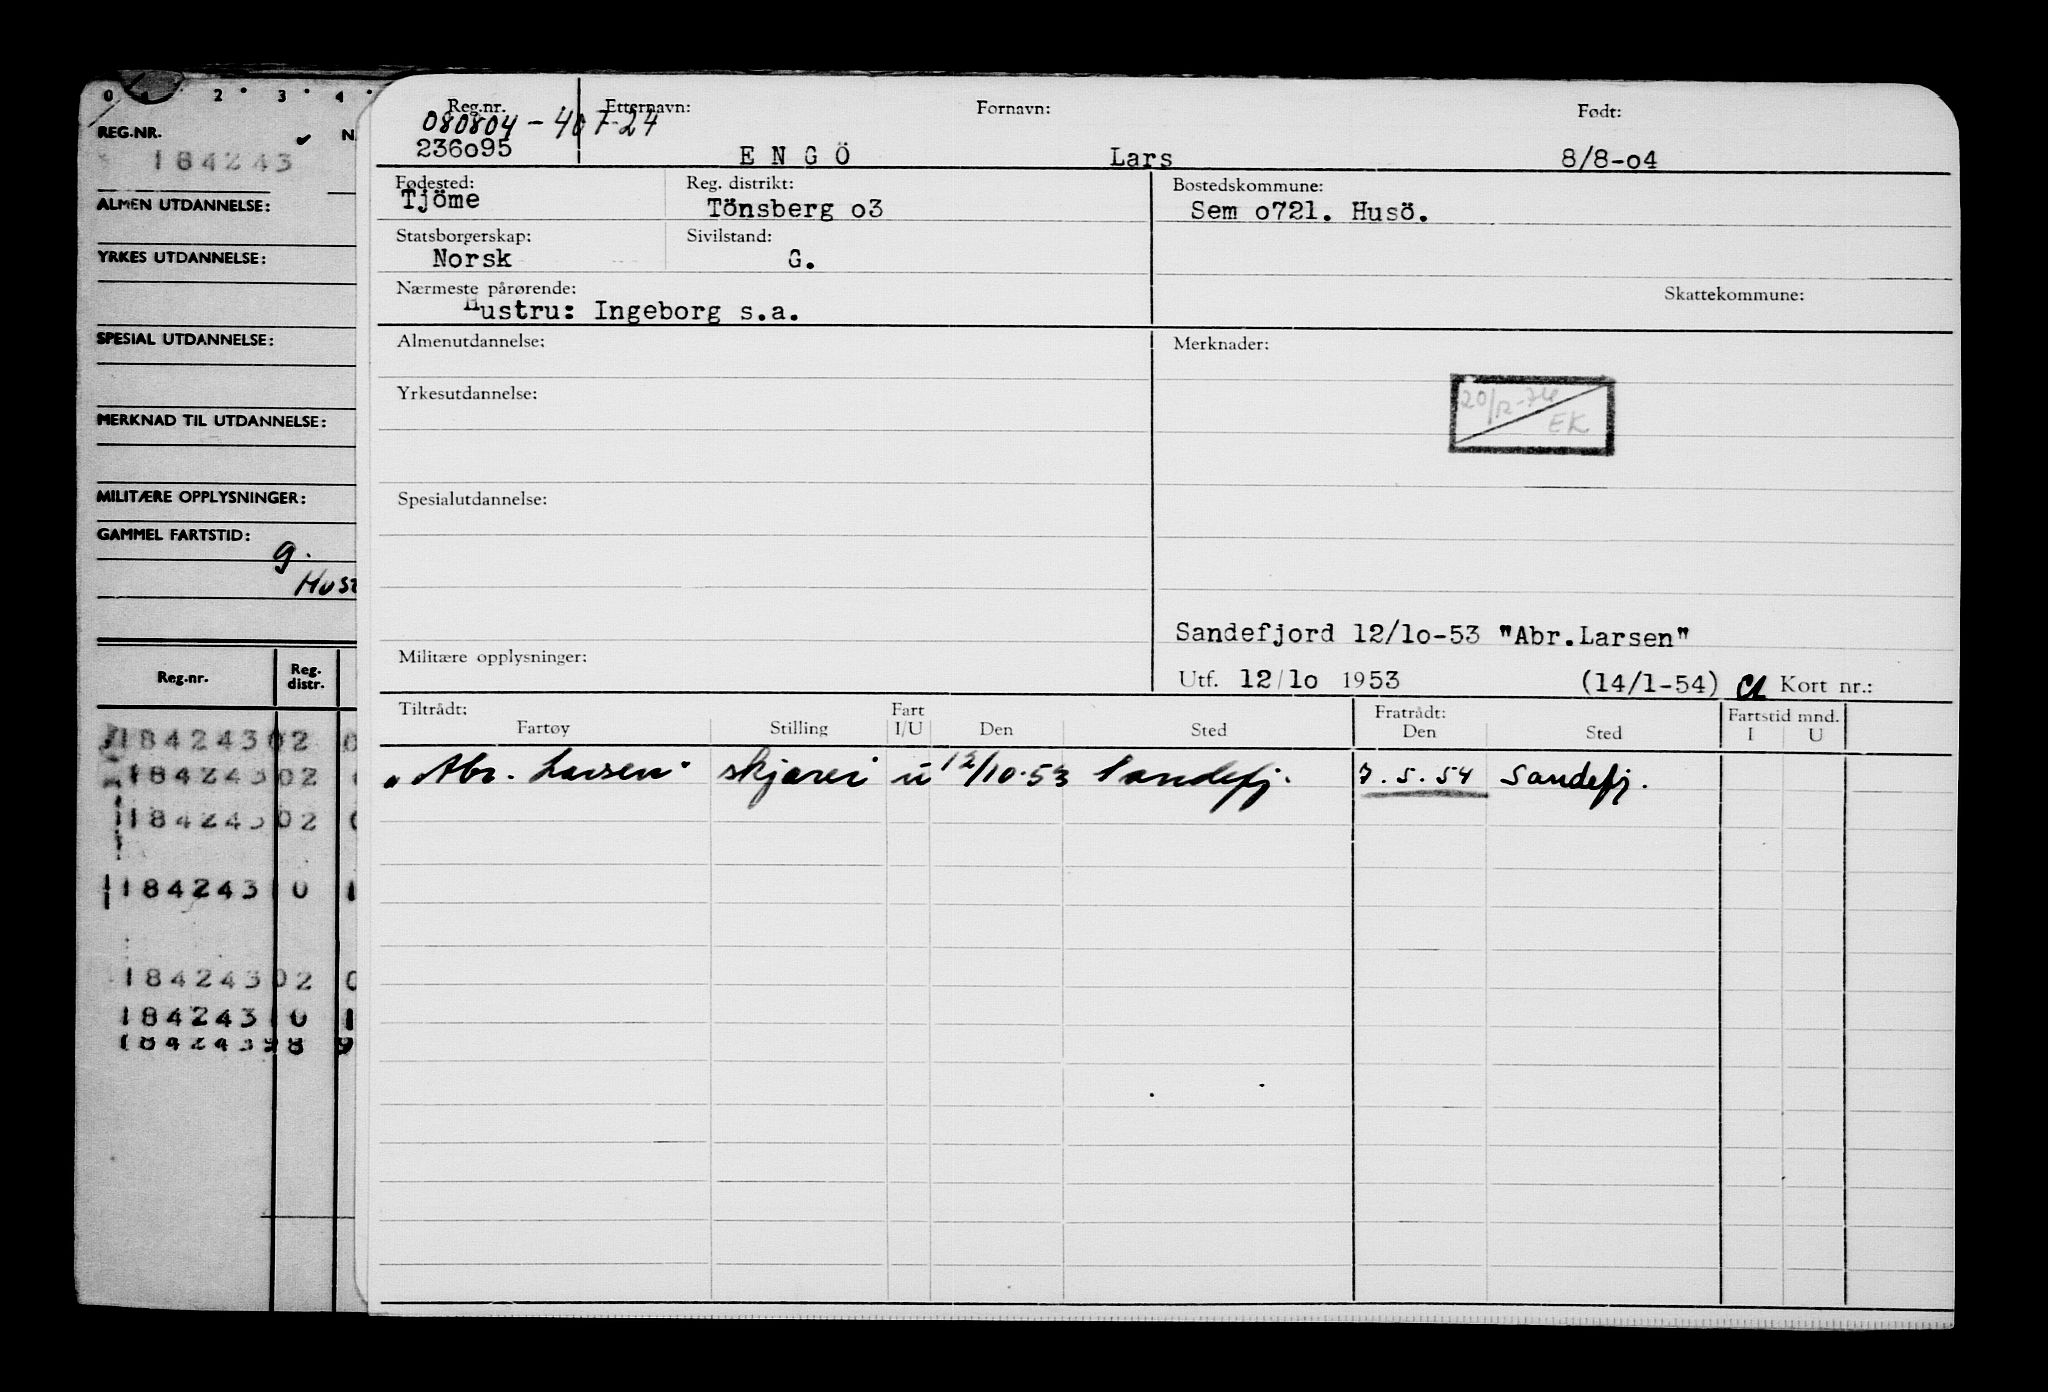 0 1 2 3 4
REG.NR. N
184243
ALMEN UTDANNELSE:
YRKES UTDANNELSE:
SPESIAL UTDANNELSE:
MERKNAD TIL UTDANNELSE:
MILITÆRE OPPLYSNINGER:
GAMMEL FARTSTID:
g.
Reg.nr. Reg. distr.
184243 02 0
184243 02
184243 02 0
184243 0 1
184243 02 0
184243 0 1
184243 98 9
Reg.nr. Etternavn: Fornavn: Født:
080804-407-24
236o95 E N G Ö Lars 8/8-o4
Fødested: Reg. distrikt: Bostedskommune:
Tjöme Tönsberg o3 Sem o721. Husö.
Statsborgerskap: Sivilstand:
Norsk G.
Nærmeste pårørende: Skattekommune:
Hustru: Ingeborg s.a.
Almenutdannelse: Merknader:
Yrkesutdannelse:
20/12-74
EK
Spesialutdannelse:
Sandefjord 12/1o-53 "Abr.Larsen"
Militære opplysninger:
Utf. 12/1o 1953 (14/1-54) Kort nr.:
Tiltrådt: Fart Fratrådt: Fartstid mnd.
Fartøy Stilling I/U Den Sted Den Sted I U
"Abr. Larsen" skjærer u 12/10-53 Sandefj. 7.5.54 Sandefj.